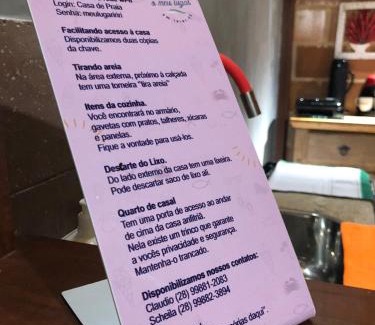 Login: Casa de Praia
Senha: meulugarinn
o meu lugar
Facilitando acesso à casa
Disponibilizamos duas cópias
da chave.
Tirando areia
Na área externa, próximo à calçada
tem uma torneira "tira areia"
Itens da cozinha.
Você encontrará no armário,
gavetas com pratos, talheres, xícaras
e panelas.
Fique a vontade para usá-los.
Descarte do Lixo.
Do lado externo da casa tem uma lixeira.
Pode descartar saco de lixo ali.
Quarto de casal
Tem uma porta de acesso ao andar
de cima da casa anfitriã.
Nela existe um trinco que garante
a vocês privacidade e segurança.
Mantenha-o trancado.
Disponibilizamos nossos contatos:
Claudio (28) 99881-2083
Scheila (28) 99882-3894
daqui".